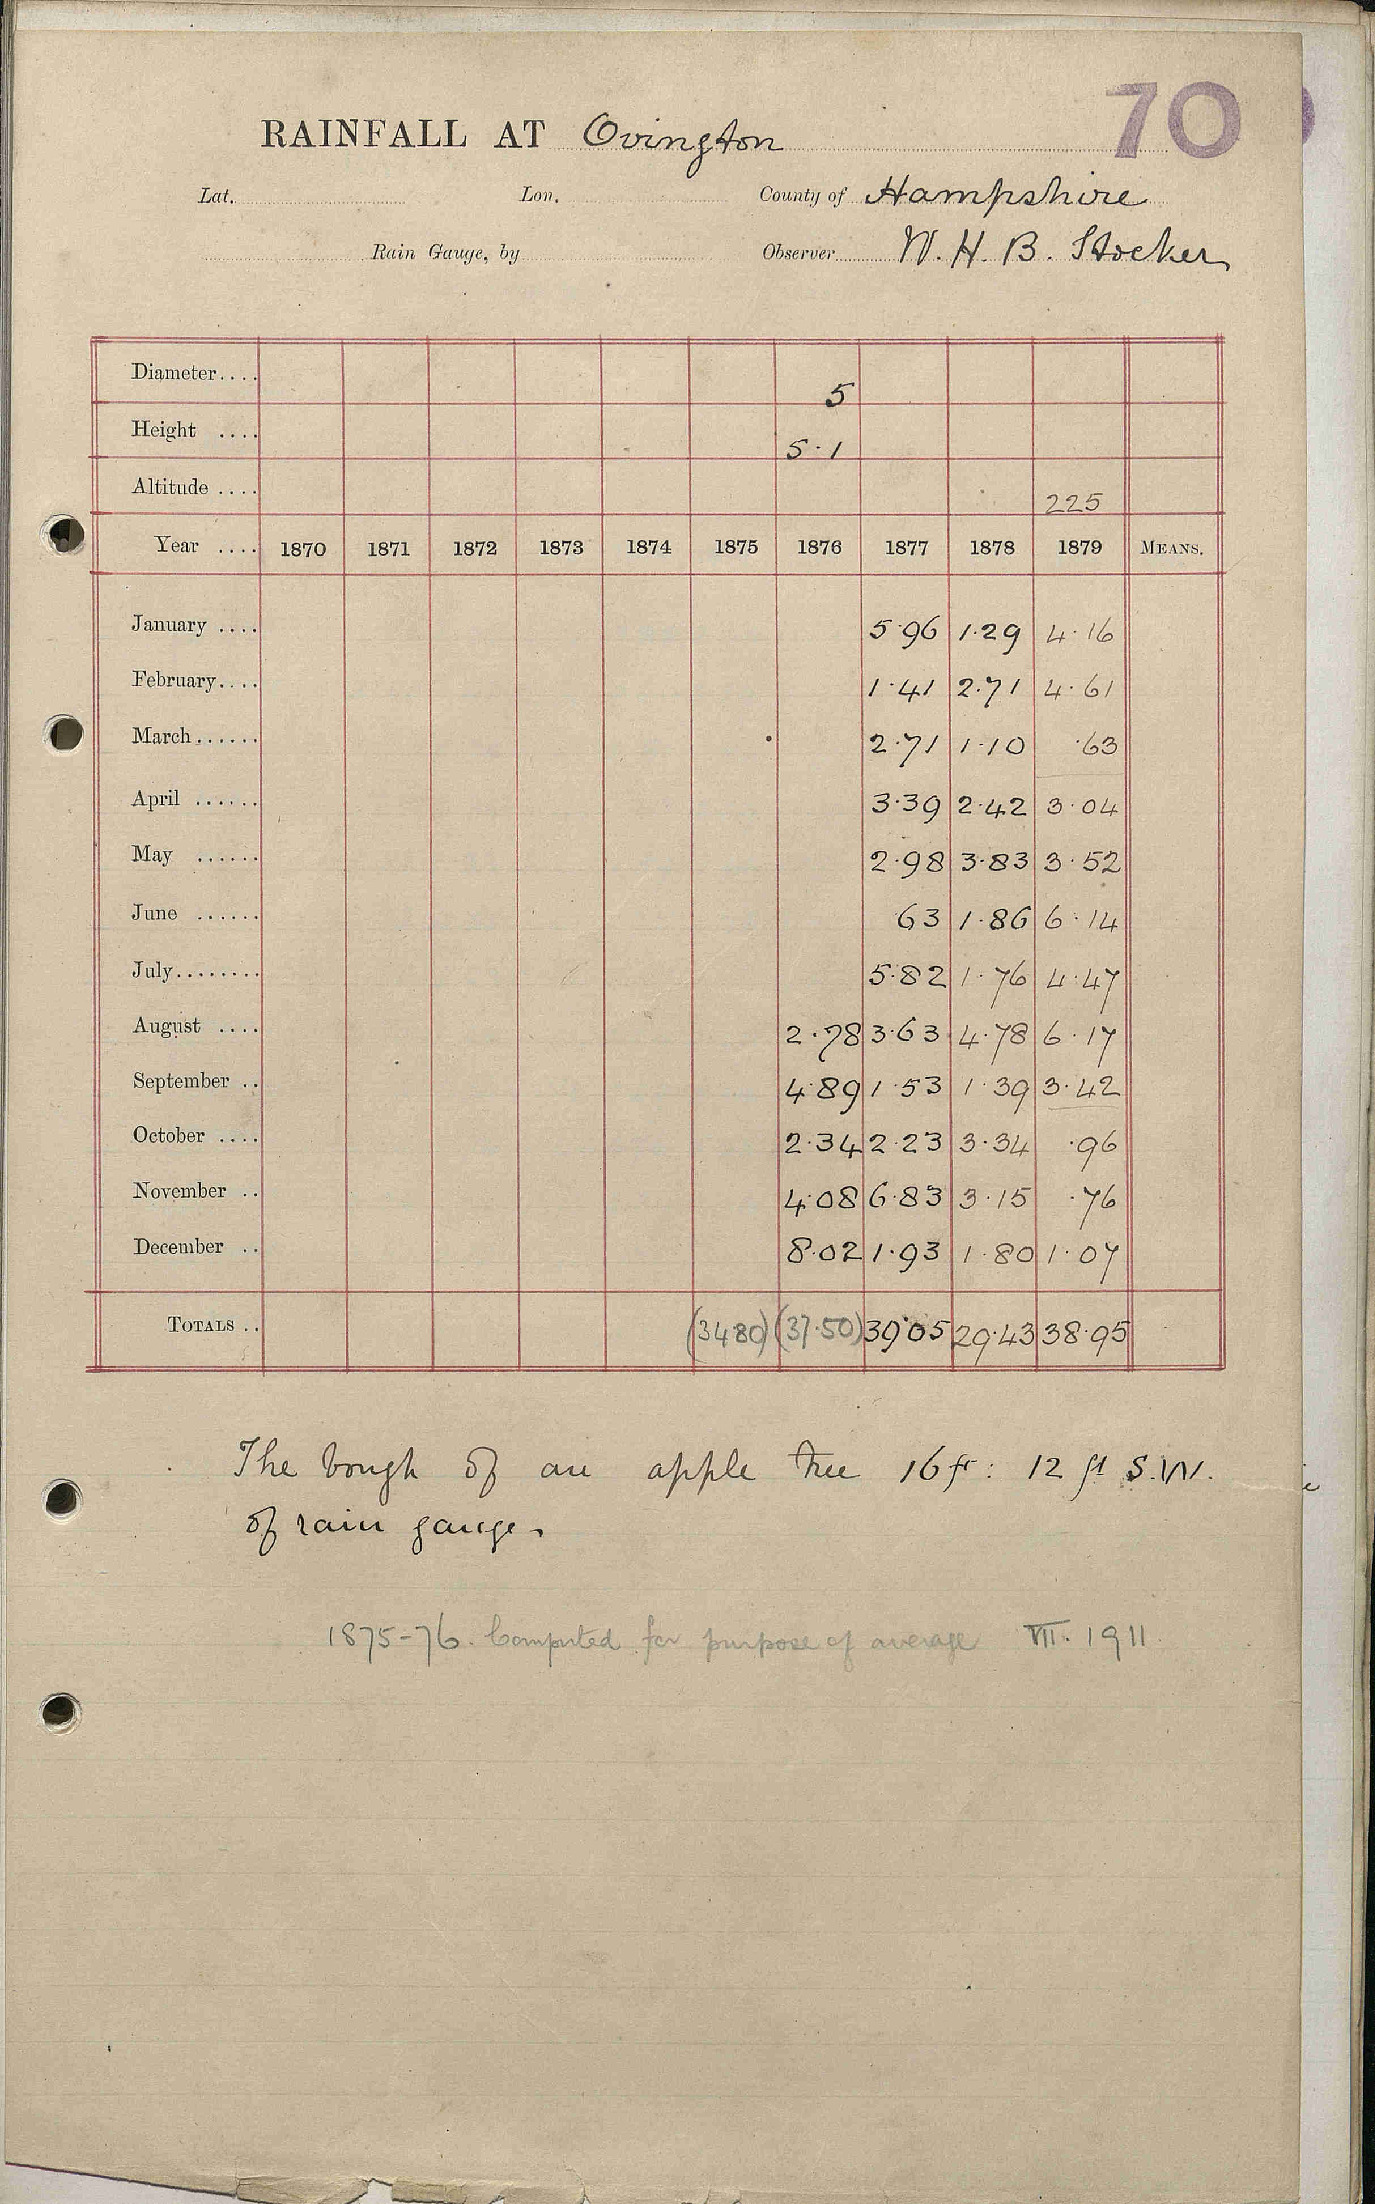 70
RAINFALL AT Ovington
Lat. Lon. County of Hampshire
Rain Gauge, by Observer W. H. B. Stocker
Diameter.... 5
Height .... 5.1
Altitude .... 225
Year .... 1870 1871 1872 1873 1874 1875 1876 1877 1878 1879 MEANS.
January .... 5.96 1.29 4.16
February.... 1.41 2.71 4.61
March...... 2.71 1.10 .63
April ...... 3.39 2.42 3.04
May ...... 2.98 3.83 3.52
June ...... 63 1.86 6.14
July........ 5.82 1.76 4.47
August .... 2.78 3.63 4.78 6.17
September .. 4.89 1.53 1.39 3.42
October .... 2.34 2.23 3.34 .96
November .. 4.08 6.83 3.15 .76
December .. 8.02 1.93 1.80 1.07
TOTALS .. (34.80) (37.50) 39.05 29.43 38.95
The bough of an apple tree 16 ft: 12 ft S.W.
of rain gauge.
1875-76. Computed for purpose of average VII. 1911.